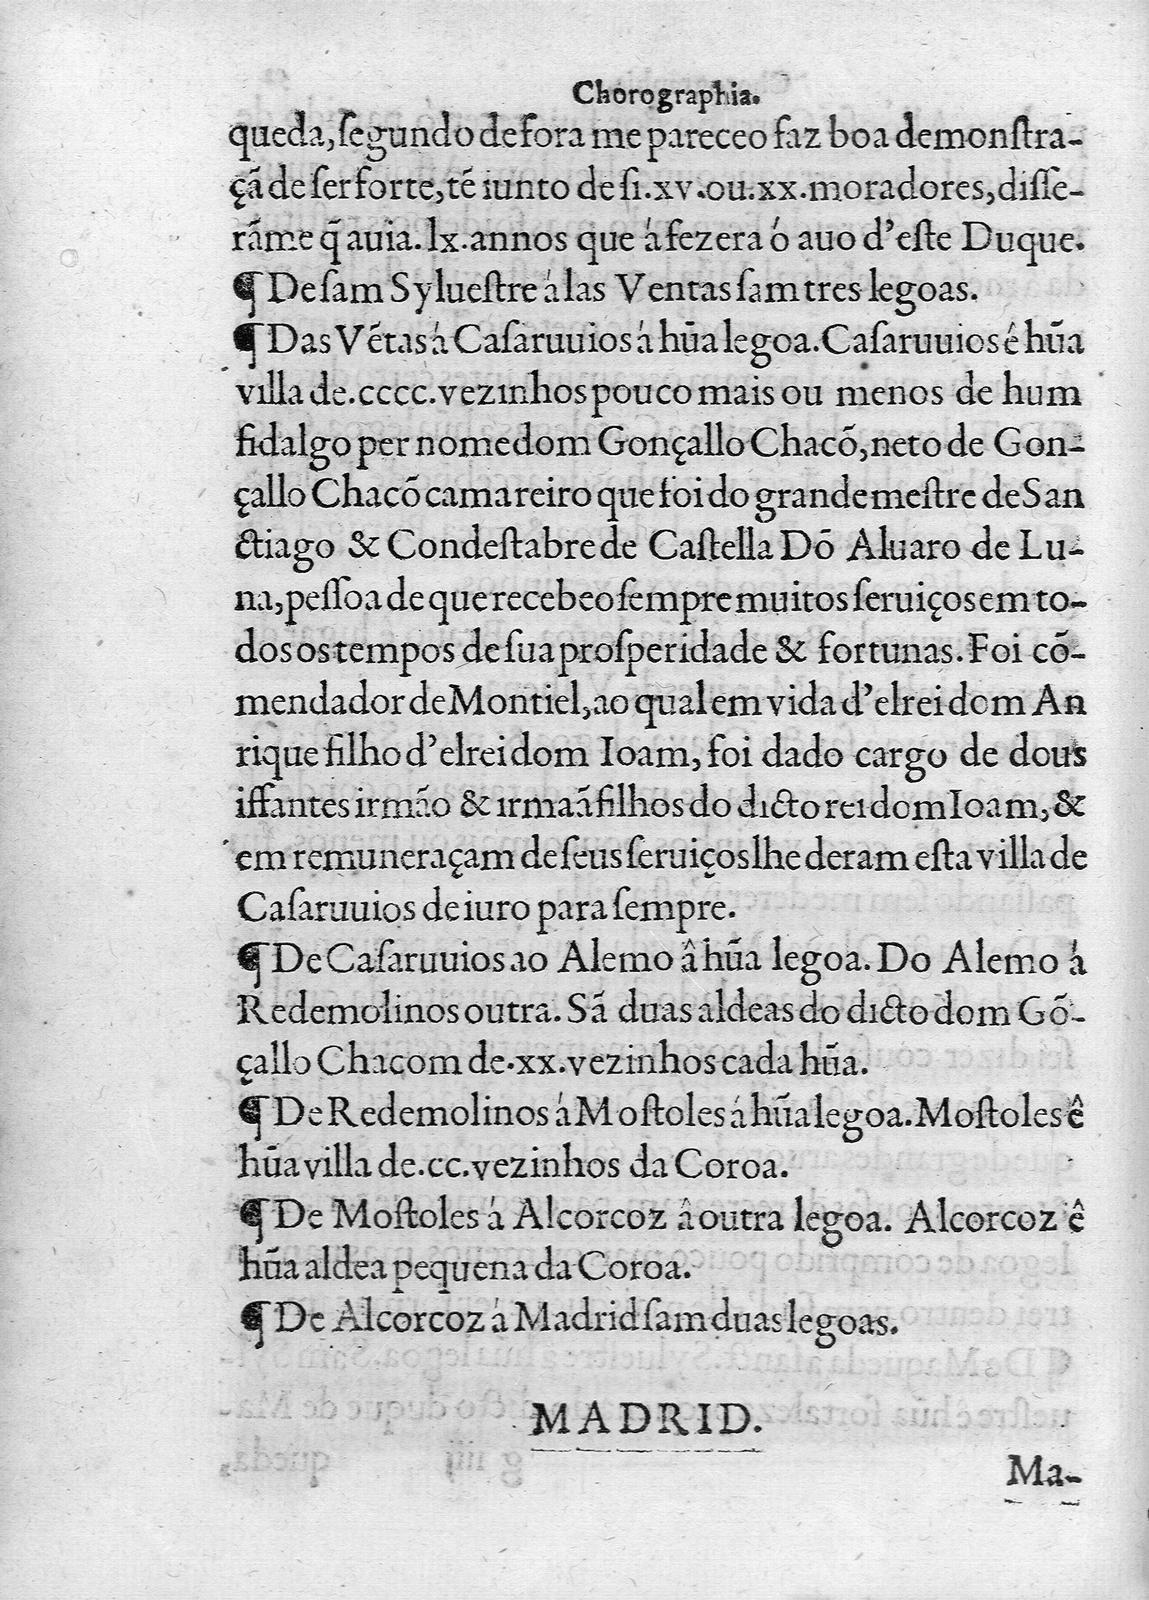 Chorographia.
queda, ſegundo de fora me pareceo faz boa demonſtra-
çã de ſer forte, tẽ iunto de ſi .xv. ou .xx. moradores, diſſe-
rãme q̃ auia .lx. annos que á fezera ó auo d'eſte Duque.
¶ De ſam Sylueſtre á las Ventas ſam tres legoas.
¶ Das Vẽtas á Caſaruuios á hũa legoa. Caſaruuios é hũa
villa de .cccc. vezinhos pouco mais ou menos de hum
fidalgo per nome dom Gonçallo Chacõ, neto de Gon-
çallo Chacõ camareiro que foi do grande meſtre de San
ctiago & Condeſtabre de Caſtella Dõ Aluaro de Lu-
na, peſſoa de que recebeo ſempre muitos ſeruiços em to-
dos os tempos de ſua proſperidade & fortunas. Foi cõ-
mendador de Montiel, ao qual em vida d'elrei dom An
rique filho d'elrei dom Ioam, foi dado cargo de dous
iffantes irmão & irmaã filhos do dicto rei dom Ioam, &
em remuneraçam de ſeus ſeruiços lhe deram eſta villa de
Caſaruuios de iuro para ſempre.
¶ De Caſaruuios ao Alemo â hũa legoa. Do Alemo á
Redemolinos outra. Sã duas aldeas do dicto dom Gõ-
çallo Chacom de .xx. vezinhos cada hũa.
¶ De Redemolinos á Moſtoles á hũa legoa. Moſtoles ê
hũa villa de .cc. vezinhos da Coroa.
¶ De Moſtoles á Alcorcoz â outra legoa. Alcorcoz ê
hũa aldea pequena da Coroa.
¶ De Alcorcoz á Madrid ſam duas legoas.
MADRID.
Ma-